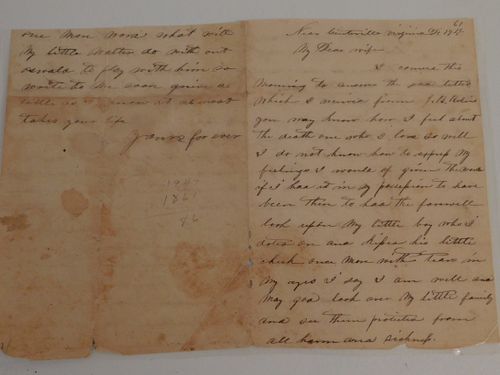 61
Near Centreville Virginia De 19th
My Dear wife
I comence this
Morning to answer the sad letter
Which I receive from J B
you may know how I feel about
the death one who I love so well
I do not know how to express My
feelings I would of given the world
if I had it in My possession to have
been there to had the farewell
look uppon My little boy who I
doted on and kissed his little
cheek once More with tears in
My eyes I say I am well and
May god look over My little family
and see them protected from
all harm and sickness.
one More what will
My little Walter do with out
to play with him so
write to Me soon
as I it al most
takes your life
Yours for ever
1947
1861
86